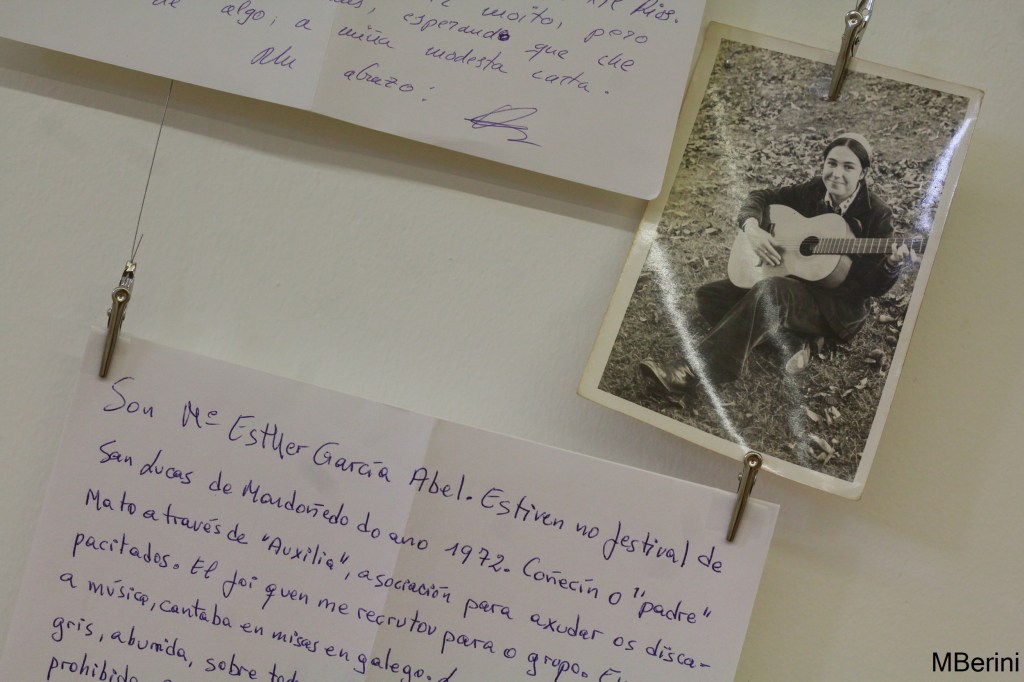 moito, pero
de algo, a esperando que che
miña modesta carta.
abrazo:
Son Mª Esther García Abel. Estiven no festival de
San Lucas de Mondoñedo do ano 1972. Coñecín o "padre"
Mato a través de "Auxilia", asociación para axudar os disca-
pacitados. El foi quen me recrutou para o grupo.
a música, cantaba en misas en galego.
gris, aburrida, sobre
prohibido
MBerini